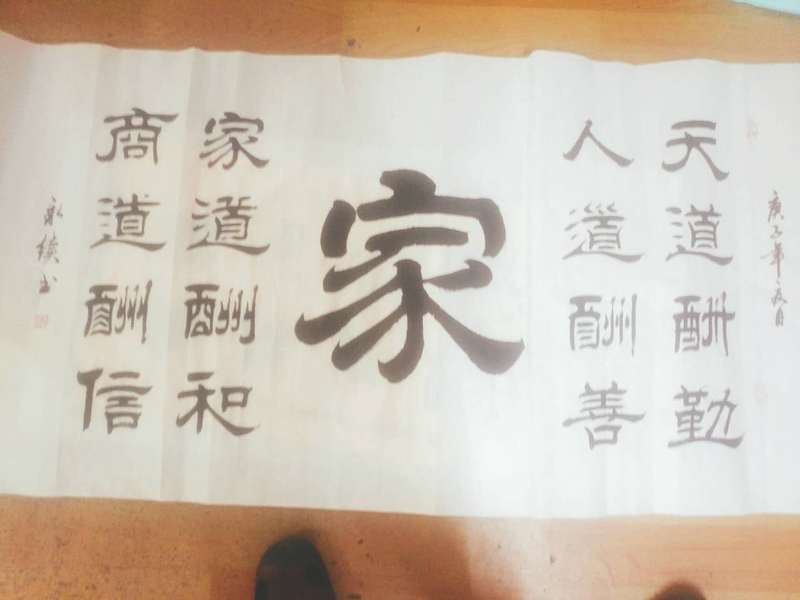 庚子年夏月
天道酬勤
人道酬善
家
家道酬和
商道酬信
永续书